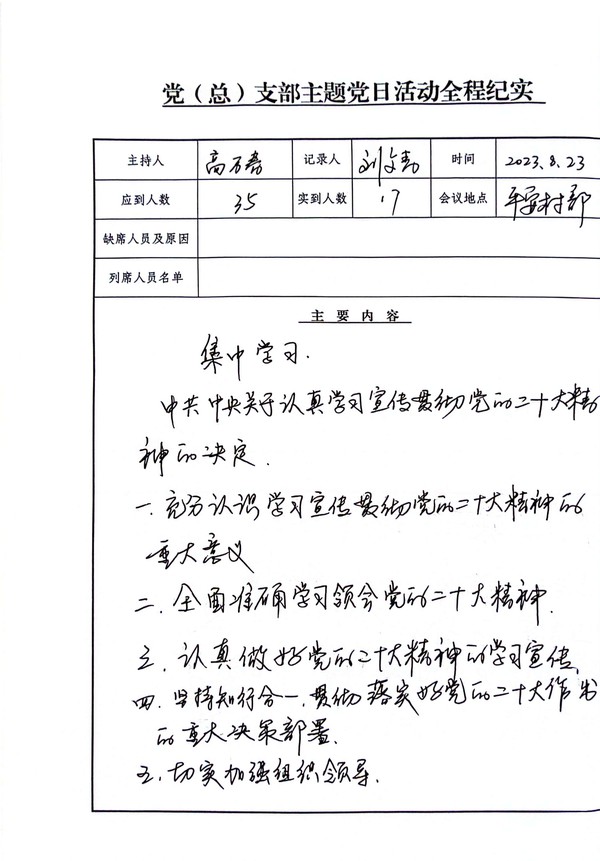 党（总）支部主题党日活动全程纪实
主持人 高万春 记录人 时间 2023.8.23
应到人数 35 实到人数 17 会议地点 平安村部
缺席人员及原因
列席人员名单
主要内容
集中学习.
中共中央关于认真学习宣传贯彻党的二十大精
神的决定.
一.充分认识学习宣传贯彻党的二十大精神的
重大意义
二.全面准确学习领会党的二十大精神.
三.认真做好党的二十大精神的学习宣传
四.坚持知行合一.贯彻落实好党的二十大作出
的重大决策部署.
五.切实加强组织领导.